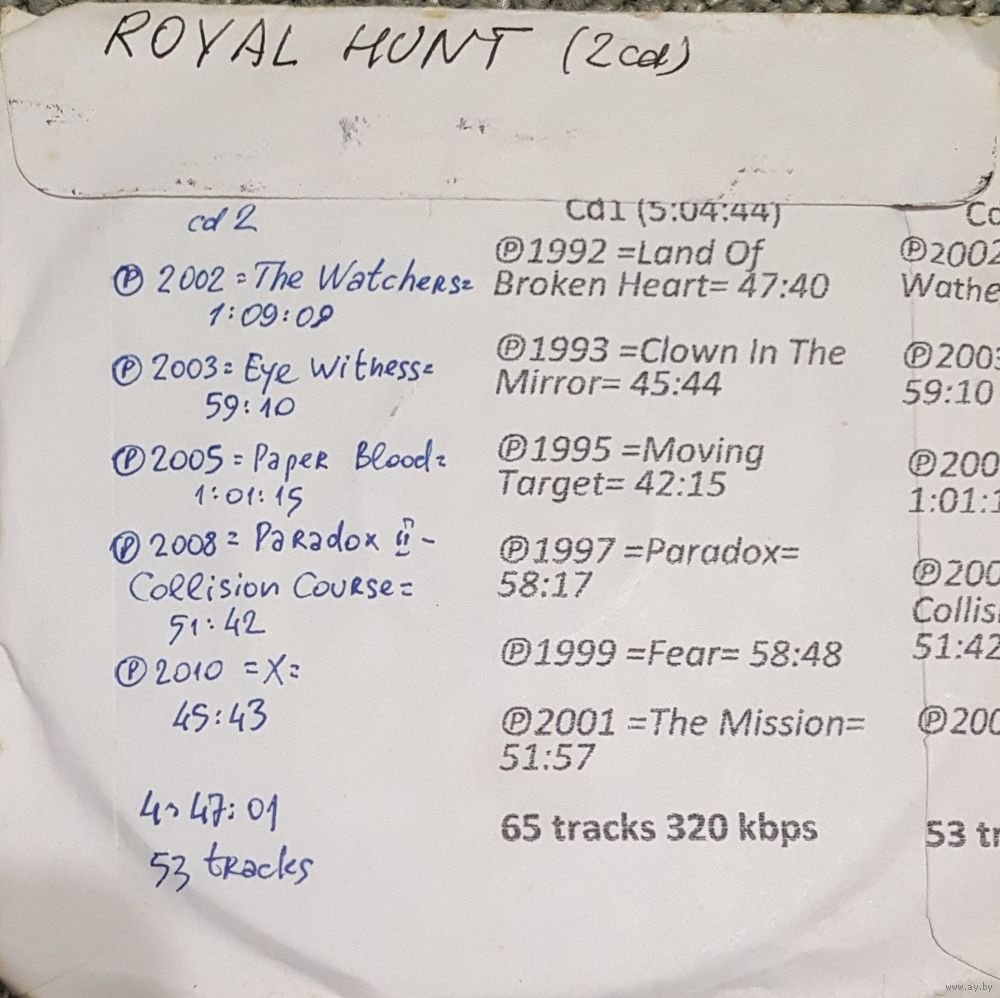 ROYAL HUNT (2cd)
cd 2
Ⓟ 2002 = The Watchers=
1:09:09
Ⓟ 2003= Eye Witness=
59:10
Ⓟ 2005 = Paper Blood=
1:01:15
Ⓟ 2008 = Paradox II -
Collision Course=
51:42
Ⓟ 2010 = X=
45:43
4:47:01
53 tracks
Cd1 (5:04:44)
Ⓟ1992 =Land Of
Broken Heart= 47:40
Ⓟ1993 =Clown In The
Mirror= 45:44
Ⓟ1995 =Moving
Target= 42:15
Ⓟ1997 =Paradox=
58:17
Ⓟ1999 =Fear= 58:48
Ⓟ2001 =The Mission=
51:57
65 tracks 320 kbps
Cd
Ⓟ2002
Wathe
Ⓟ2003
59:10
Ⓟ200
1:01:1
Ⓟ200
Collis
51:42
Ⓟ200
53 tr
www.ay.by